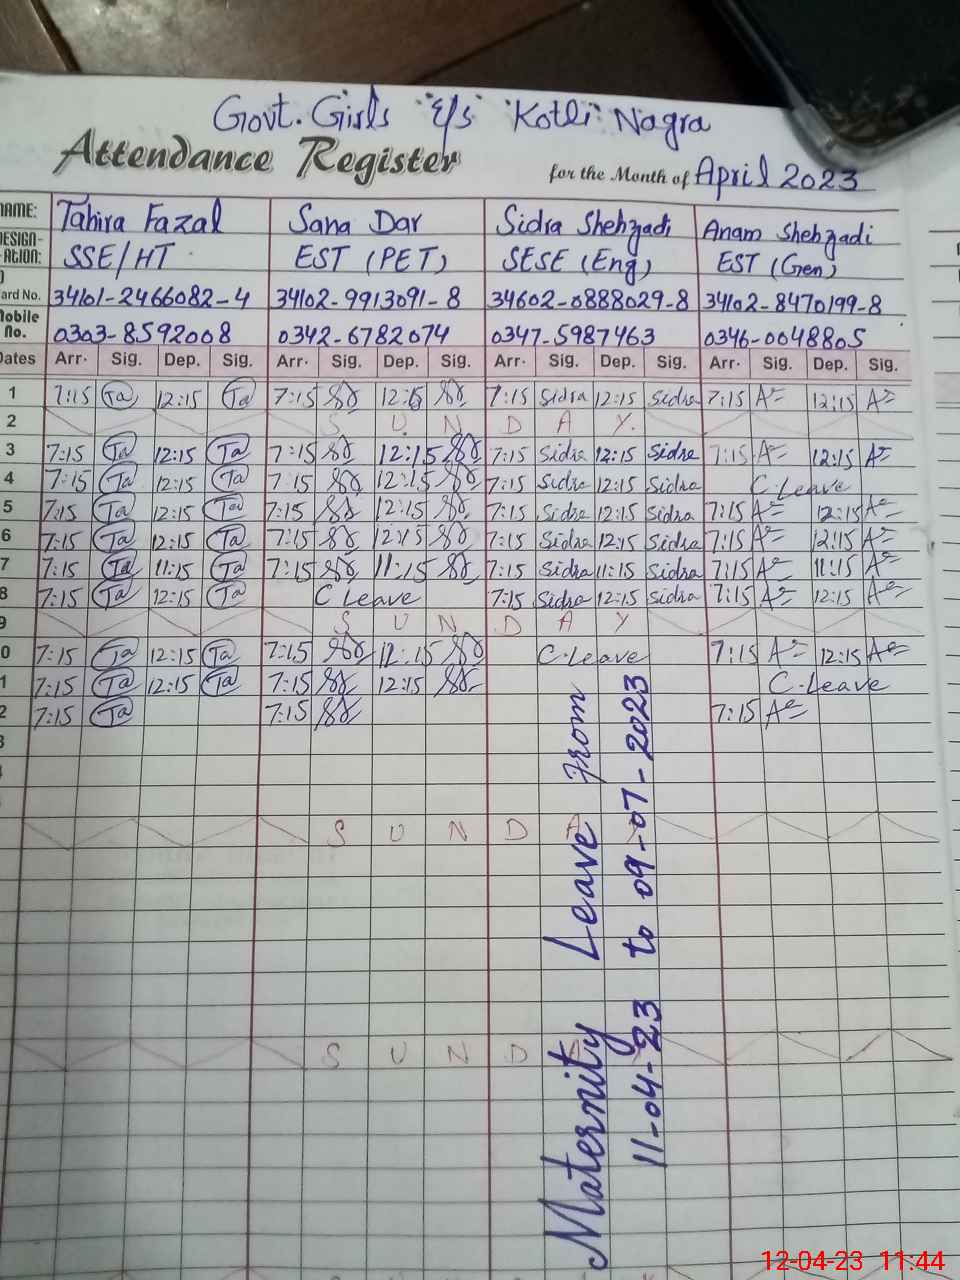 Govt. Girls E/S Kotli Nagra
Attendance Register for the Month of April 2023
NAME: Tahira Fazal Sana Dar Sidra Shehzadi Anam Shehzadi
DESIGN-ATION: SSE/HT EST (PET) SESE (Eng) EST (Gen)
ard No. 34101-2466082-4 34102-9913091-8 34602-0888029-8 34102-8470199-8
Mobile No. 0303-8592008 0342-6782074 0347-5987463 0346-0048805
Dates Arr. Sig. Dep. Sig. Arr. Sig. Dep. Sig. Arr. Sig. Dep. Sig. Arr. Sig. Dep. Sig.
1 7:15 Ta 12:15 Ta 7:15 12:15 7:15 Sidra 12:15 Sidra 7:15 12:15
2 S U N D A Y.
3 7:15 Ta 12:15 Ta 7:15 12:15 7:15 Sidra 12:15 Sidra 7:15 12:15
4 7:15 Ta 12:15 Ta 7:15 12:15 7:15 Sidra 12:15 Sidra C.Leave
5 7:15 Ta 12:15 Ta 7:15 12:15 7:15 Sidra 12:15 Sidra 7:15 12:15
6 7:15 Ta 12:15 Ta 7:15 12:15 7:15 Sidra 12:15 Sidra 7:15 12:15
7 7:15 Ta 11:15 Ta 7:15 11:15 7:15 Sidra 11:15 Sidra 7:15 11:15
8 7:15 Ta 12:15 Ta C Leave 7:15 Sidra 12:15 Sidra 7:15 12:15
9 S U N D A Y
0 7:15 Ta 12:15 Ta 7:15 12:15 C.Leave 7:15 12:15
1 7:15 Ta 12:15 Ta 7:15 12:15 C.Leave
2 7:15 Ta 7:15 7:15
3
S U N D A
S U N D
Maternity Leave from
11-04-23 to 09-07-2023
12-04-23 11:44